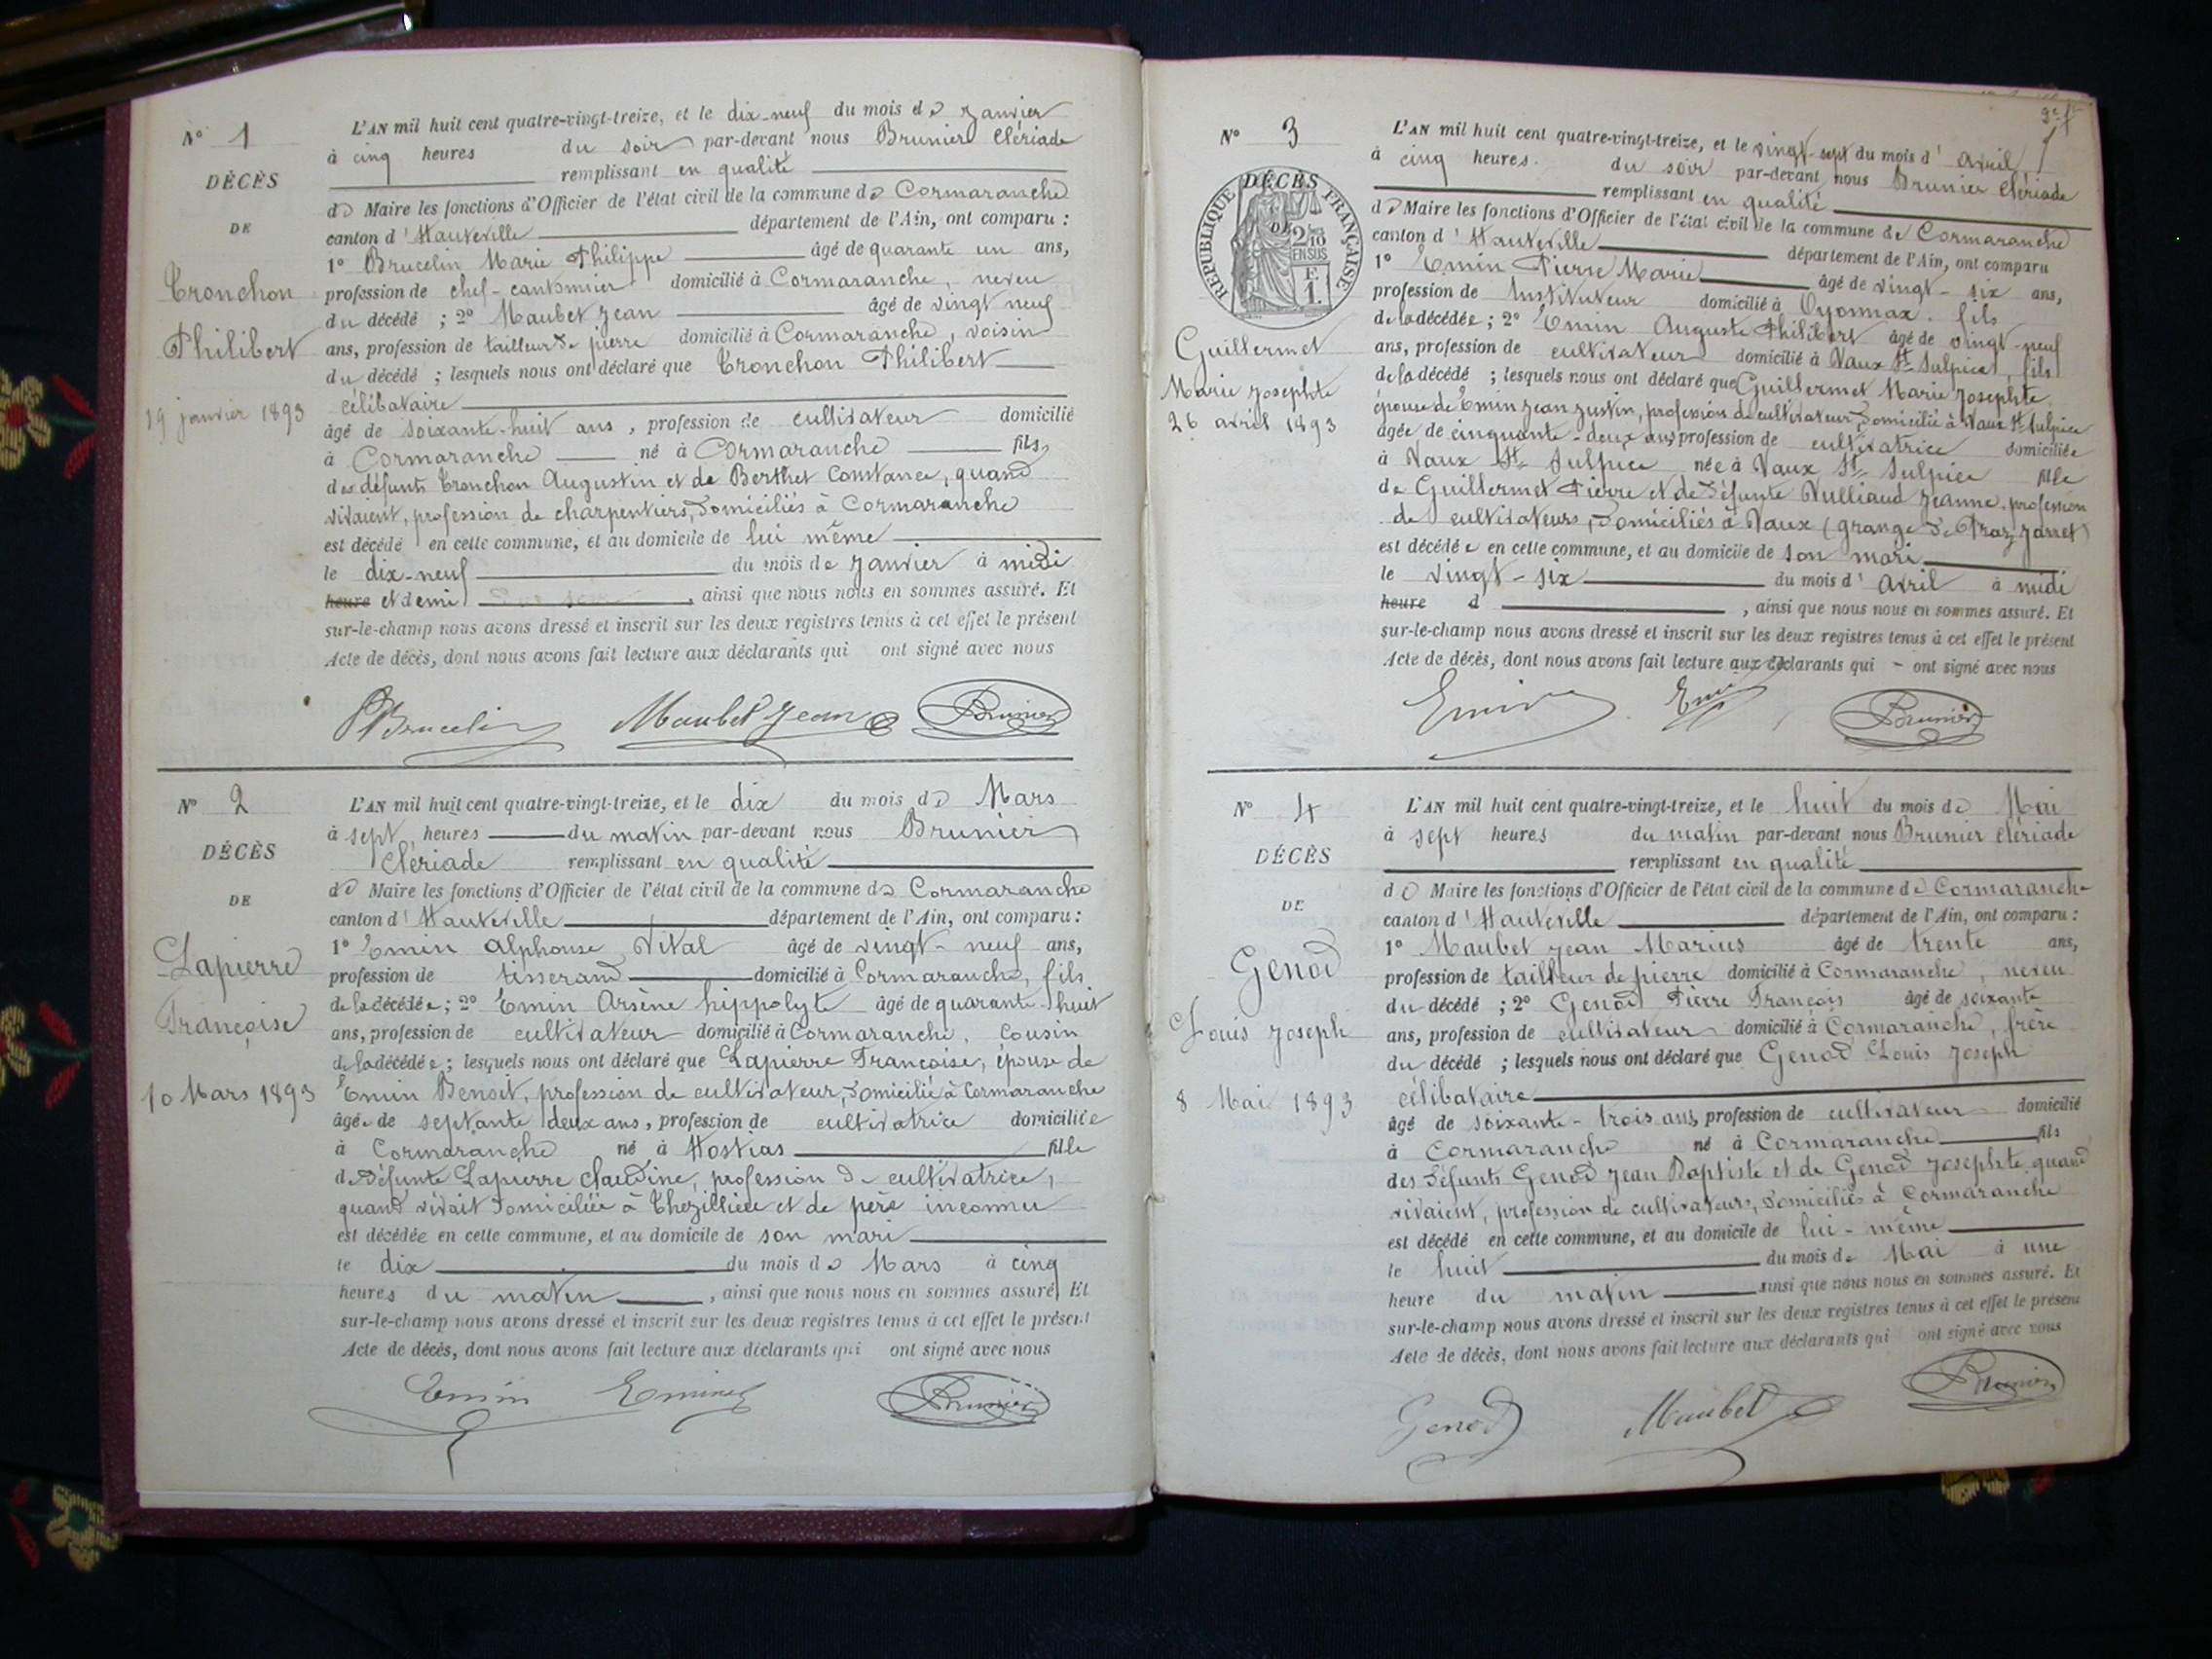 N° 1
DÉCÈS
DE
Tronchon
Philibert
19 janvier 1893
L'AN mil huit cent quatre-vingt-treize, et le dix-neuf du mois de Janvier
à cinq heures du soir par-devant nous Brunier Clériade
remplissant en qualité
de Maire les fonctions d'Officier de l'état civil de la commune de Cormaranche
canton d'Hauteville département de l'Ain, ont comparu :
1° Brucelin Marie Philippe âgé de quarante un ans,
profession de chef-cantonnier domicilié à Cormaranche, neveu
du décédé ; 2° Maubet Jean âgé de vingt neuf
ans, profession de tailleur de pierre domicilié à Cormaranche, voisin
du décédé ; lesquels nous ont déclaré que Tronchon Philibert
célibataire
âgé de soixante-huit ans, profession de cultivateur domicilié
à Cormaranche né à Cormaranche fils
des défunts Tronchon Augustin et de Berthet Constance, quand
vivaient, profession de charpentiers, domiciliés à Cormaranche
est décédé en cette commune, et au domicile de lui même
le dix-neuf du mois de Janvier à midi
heure et demi, ainsi que nous nous en sommes assuré. Et
sur-le-champ nous avons dressé et inscrit sur les deux registres tenus à cet effet le présent
Acte de décès, dont nous avons fait lecture aux déclarants qui ont signé avec nous
Brucelin Maubet Jean Brunier
N° 2
DÉCÈS
DE
Lapierre
Françoise
10 Mars 1893
L'AN mil huit cent quatre-vingt-treize, et le dix du mois de Mars
à sept heures du matin par-devant nous Brunier
Clériade remplissant en qualité
de Maire les fonctions d'Officier de l'état civil de la commune de Cormaranche
canton d'Hauteville département de l'Ain, ont comparu :
1° Emin Alphonse Vital âgé de vingt-neuf ans,
profession de tisserand domicilié à Cormaranche, fils
de la décédée ; 2° Emin Arsène hippolyte âgé de quarante-huit
ans, profession de cultivateur domicilié à Cormaranche, Cousin
de la décédée ; lesquels nous ont déclaré que Lapierre Françoise, épouse de
Emin Benoit, profession de cultivateur, domicilié à Cormaranche
âgée de septante deux ans, profession de cultivatrice domiciliée
à Cormaranche né à Hostias fille
de défunte Lapierre Claudine, profession de cultivatrice,
quand vivait domiciliée à Thezillieu et de père inconnu
est décédée en cette commune, et au domicile de son mari
le dix du mois de Mars à cinq
heures du matin, ainsi que nous nous en sommes assuré. Et
sur-le-champ nous avons dressé et inscrit sur les deux registres tenus à cet effet le présent
Acte de décès, dont nous avons fait lecture aux déclarants qui ont signé avec nous
Emin Emin Brunier
N° 3
DÉCÈS
DE
RÉPUBLIQUE FRANÇAISE
2/10 EN SUS
F. 1.
Guillermet
Marie Josephte
26 avril 1893
L'AN mil huit cent quatre-vingt-treize, et le vingt-sept du mois d'Avril
à cinq heures du soir par-devant nous Brunier Clériade
remplissant en qualité
de Maire les fonctions d'Officier de l'état civil de la commune de Cormaranche
canton d'Hauteville département de l'Ain, ont comparu
1° Emin Pierre Marie âgé de vingt-six ans,
profession de Instituteur domicilié à Oyonnax. fils
de la décédée ; 2° Emin Auguste Philibert âgé de vingt-neuf
ans, profession de cultivateur domicilié à Vaux St Sulpice, fils
de la décédé ; lesquels nous ont déclaré que Guillermet Marie Josephte,
épouse de Emin Jean Justin, profession de cultivateur, domicilié à Vaux St Sulpice
âgée de cinquante-deux ans profession de cultivatrice domiciliée
à Vaux St Sulpice née à Vaux St Sulpice fille
de Guillermet Pierre et de défunte Vulliaud Jeanne, profession
de cultivateurs, domiciliés à Vaux (grange de Praz Janet)
est décédée en cette commune, et au domicile de son mari
le vingt-six du mois d'Avril à midi
heure d, ainsi que nous nous en sommes assuré. Et
sur-le-champ nous avons dressé et inscrit sur les deux registres tenus à cet effet le présent
Acte de décès, dont nous avons fait lecture aux déclarants qui - ont signé avec nous
Emin Emin Brunier
N° 4
DÉCÈS
DE
Genod
Louis Joseph
8 Mai 1893
L'AN mil huit cent quatre-vingt-treize, et le huit du mois de Mai
à sept heures du matin par-devant nous Brunier Clériade
remplissant en qualité
de Maire les fonctions d'Officier de l'état civil de la commune de Cormaranche
canton d'Hauteville département de l'Ain, ont comparu :
1° Maubet Jean Marius âgé de trente ans,
profession de tailleur de pierre domicilié à Cormaranche, neveu
du décédé ; 2° Genod Pierre François âgé de soixante
ans, profession de cultivateur domicilié à Cormaranche, frère
du décédé ; lesquels nous ont déclaré que Genod Louis Joseph
célibataire
âgé de soixante-trois ans, profession de cultivateur domicilié
à Cormaranche né à Cormaranche fils
des défunts Genod Jean Baptiste et de Genod Josephte, quand
vivaient, profession de cultivateurs, domiciliés à Cormaranche
est décédé en cette commune, et au domicile de lui-même
le huit du mois de Mai à une
heure du matin ainsi que nous nous en sommes assuré. Et
sur-le-champ nous avons dressé et inscrit sur les deux registres tenus à cet effet le présent
Acte de décès, dont nous avons fait lecture aux déclarants qui ont signé avec nous
Genod Maubet Brunier